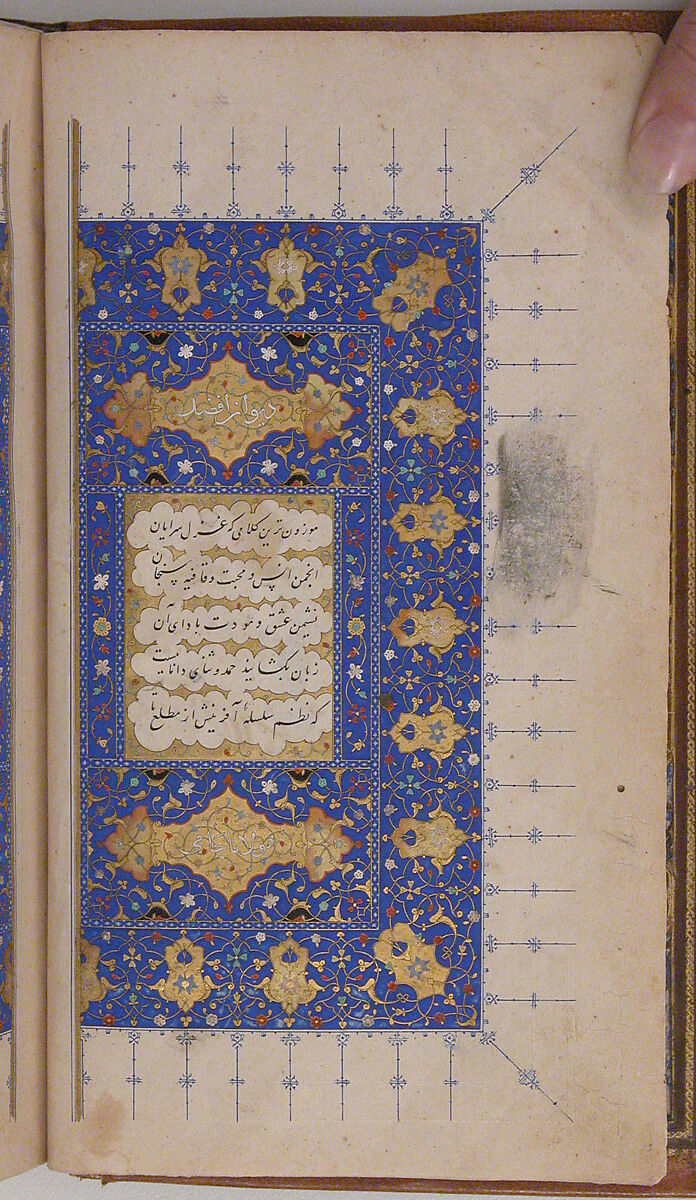 دیوان افضل
موزون ترین کلامی که غزل سرایان
انجمن انس و محبت و قافیه سنجان
نشیمن عشق و مودت بادای آن
زبان بگشایند حمد و ثنای داناییست
که نظم سلسلهٔ آفرینش از مطلع تا
مولانا جامی